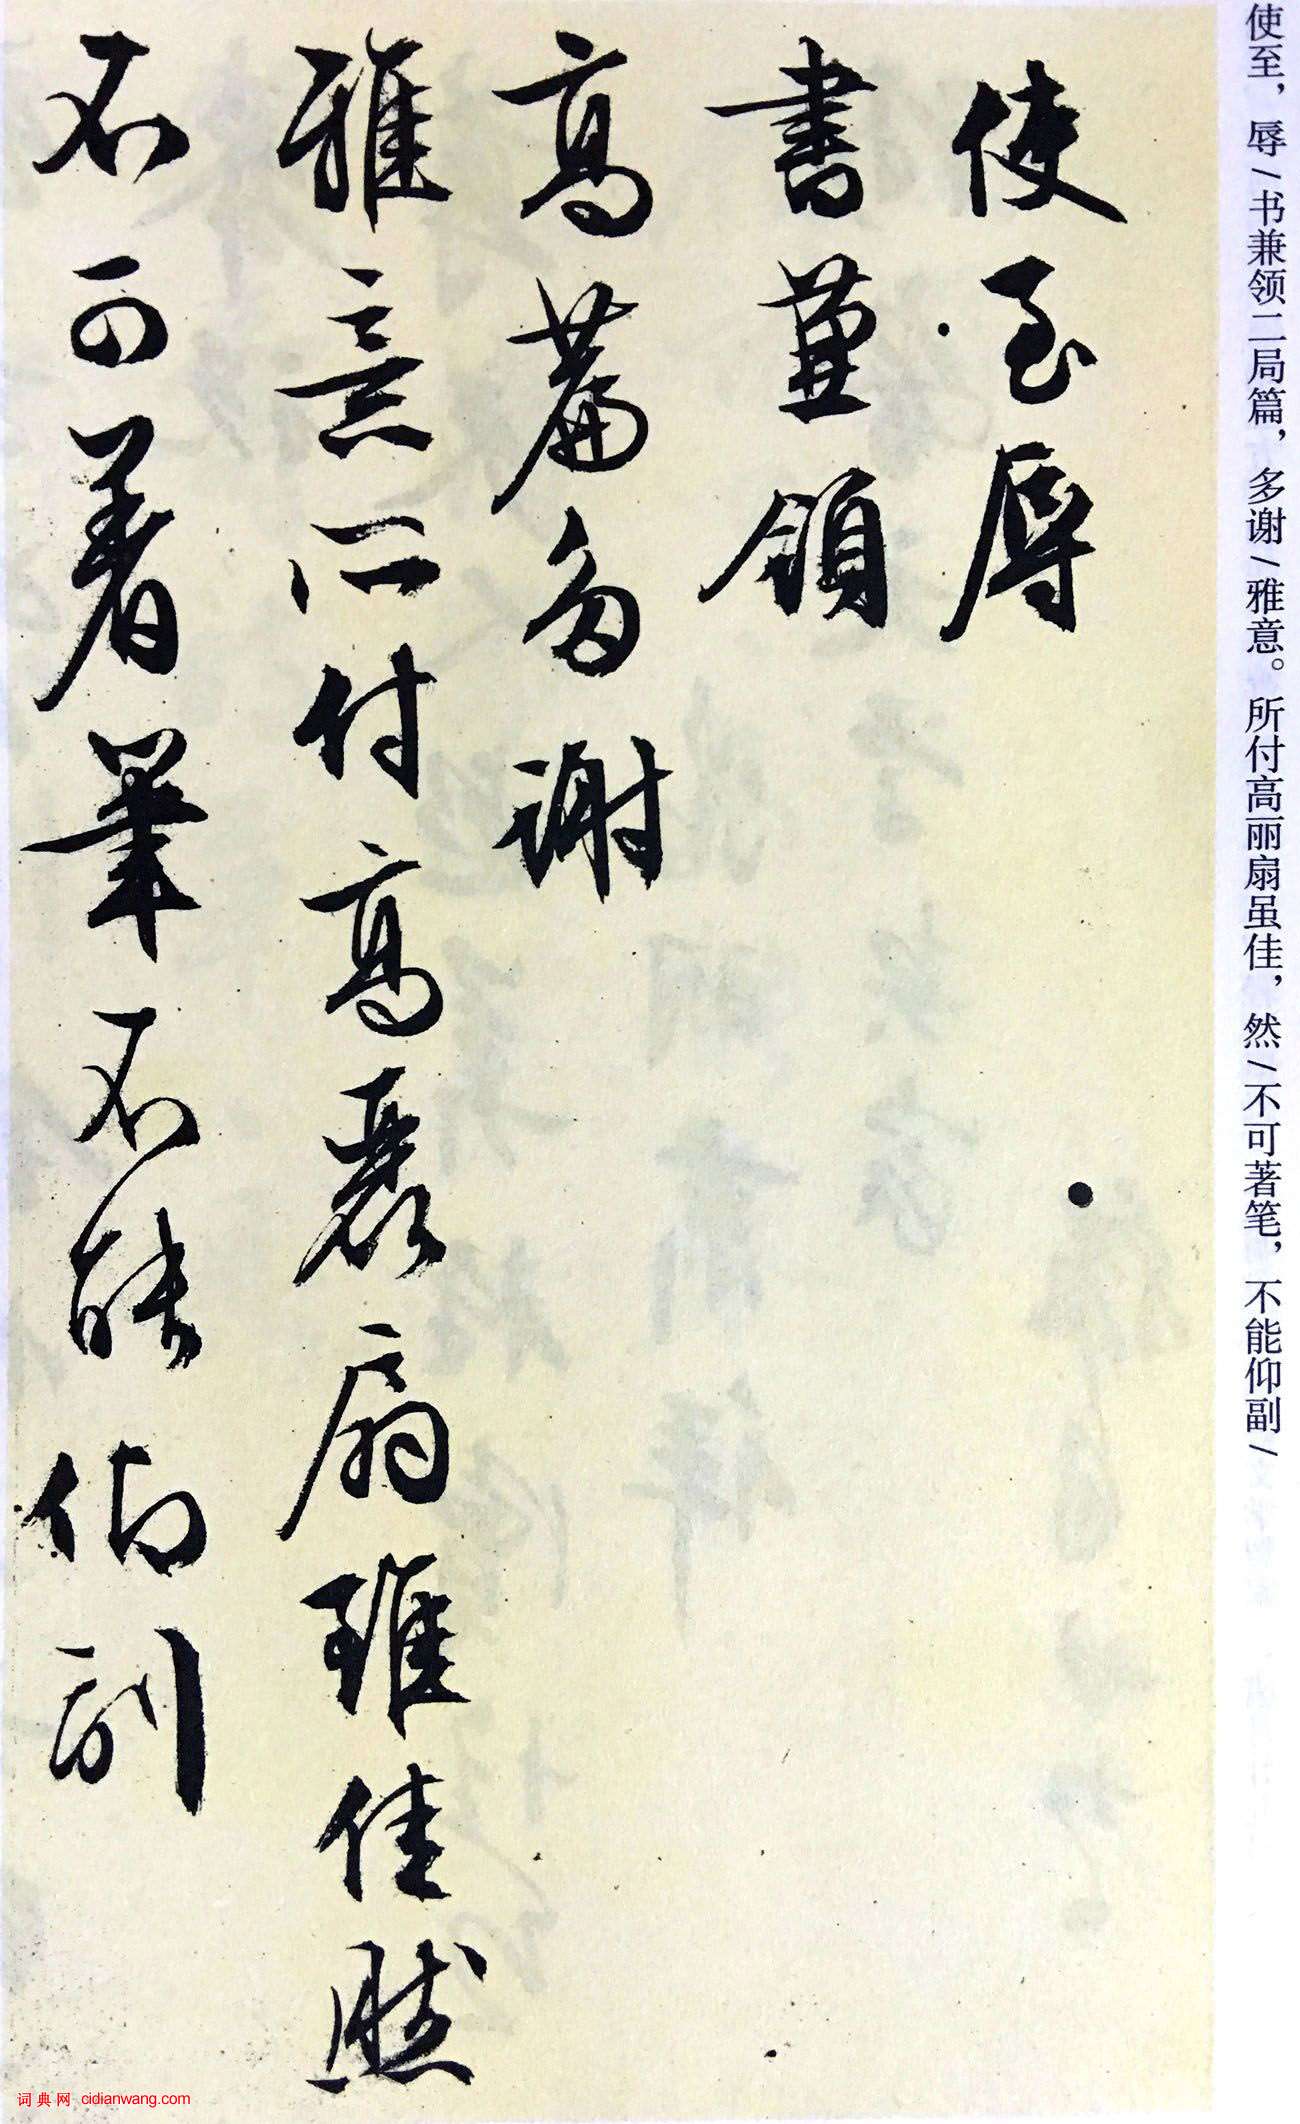 使至，辱/书兼领二局篇，多谢/雅意。所付高丽扇虽佳，然/不可著笔，不能仰副/
使至辱
書兼領
高篇多謝
雅意所付高麗扇雖佳然
不可著筆不能仰副
词典网 cidianwang.com